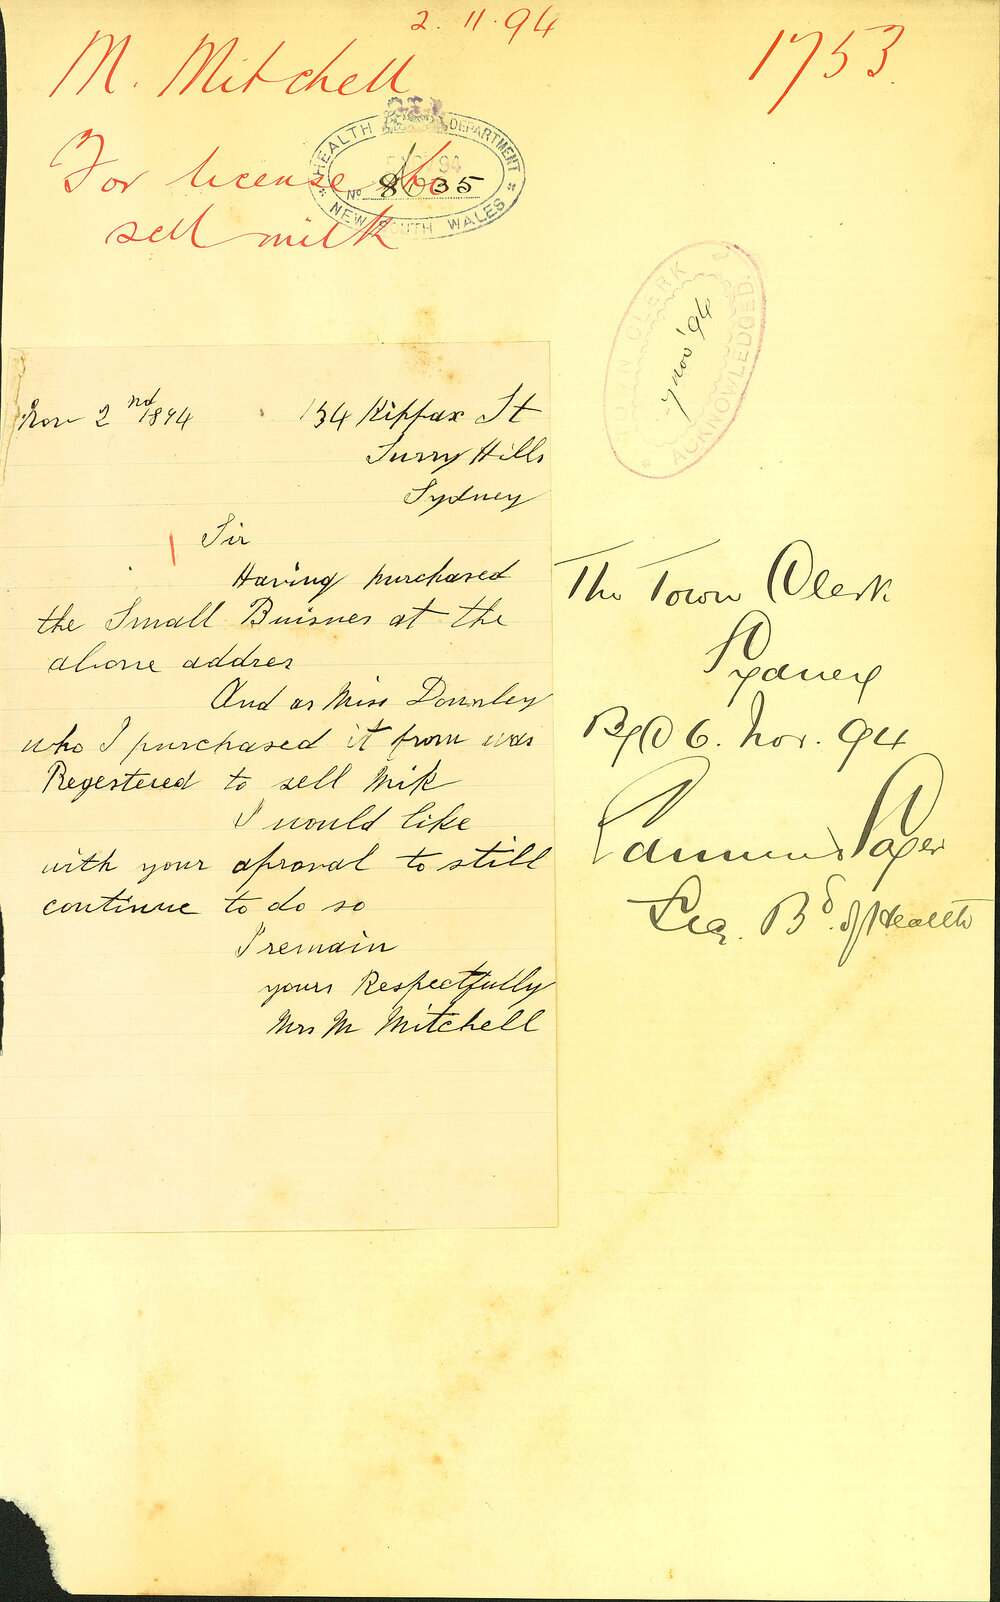 2.11.94
M. Mitchell
1753
For license to
sell milk
HEALTH DEPARTMENT
94
No 8035
NEW SOUTH WALES
CLERK
7 Nov '94
ACKNOWLEDGED.
Nov 2nd 1894
134 Kippax St
Surry Hills
Sydney
Sir
Having purchased
the Small Buisnes at the
above addres
And as Miss Donnley
who I purchased it from was
Regestered to sell Mik
I would like
with your aproval to still
continue to do so
I remain
yours Respectfully
Mrs M Mitchell
The Town Clerk
Sydney
B.C. 6. Nov. 94
Edmund Sager
Sec. Bd. of Health